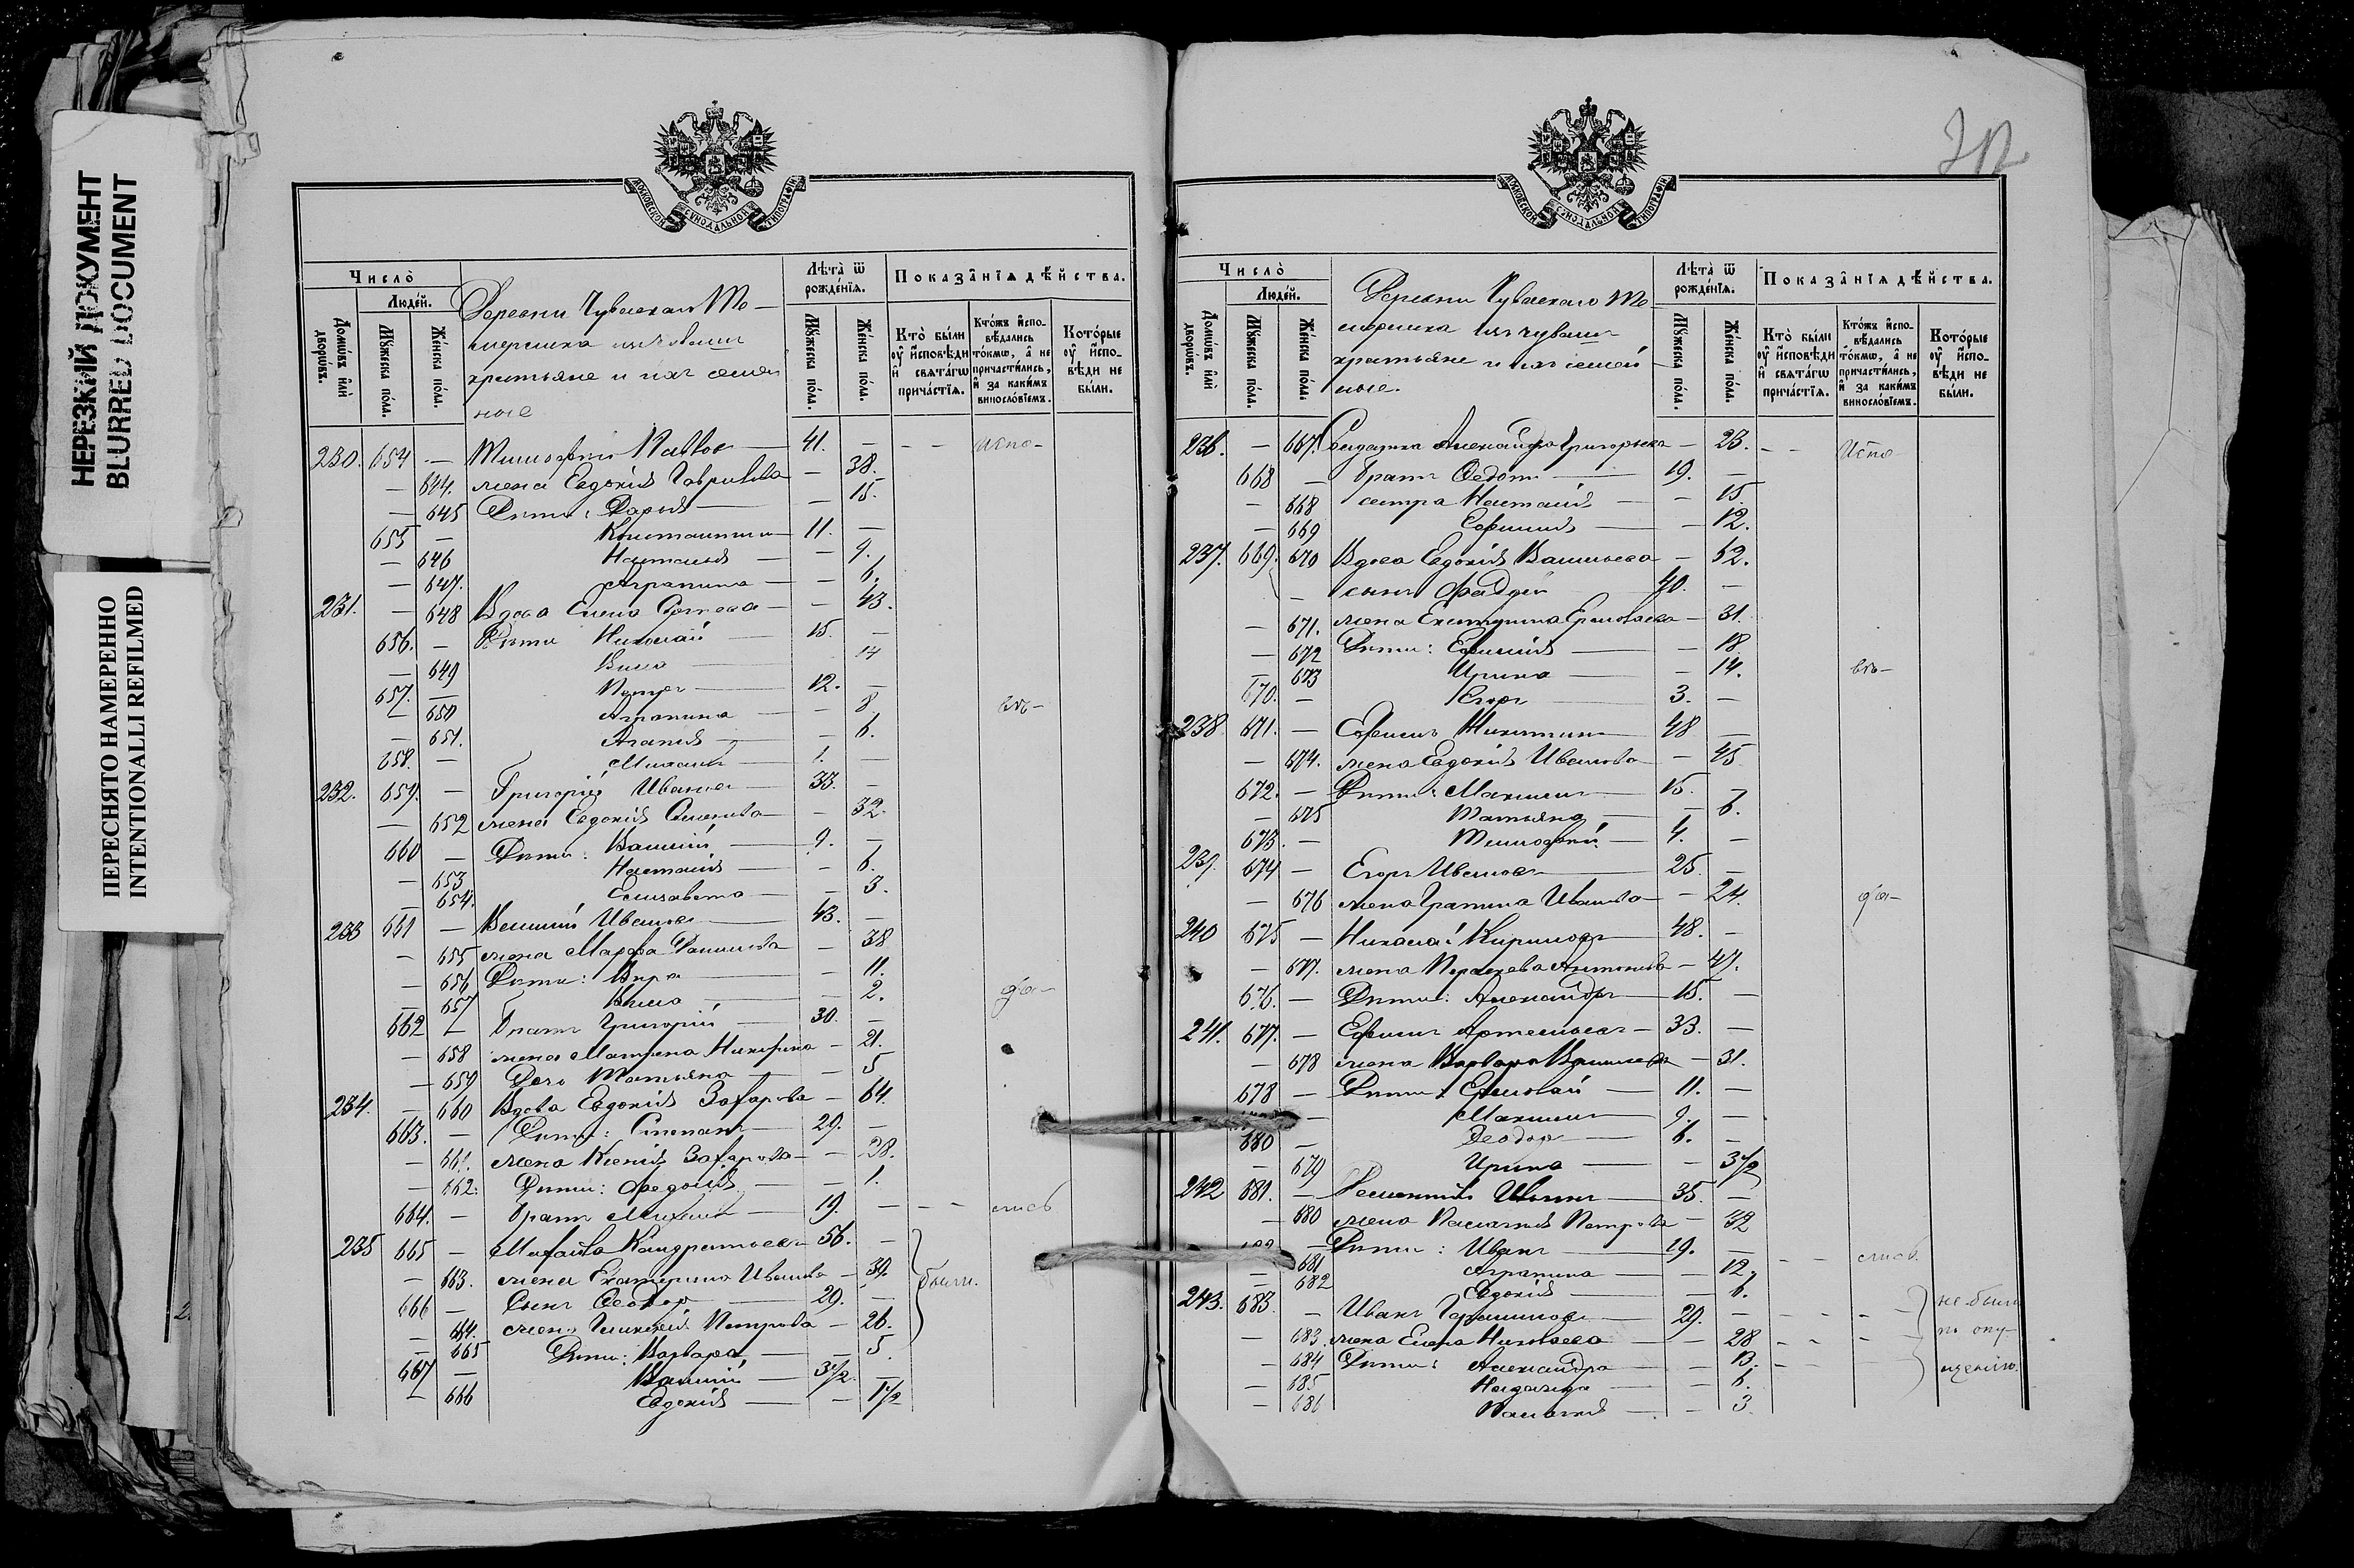 НЕРЕЗКИЙ ДОКУМЕНТ
BLURRED DOCUMENT
ПЕРЕСНЯТО НАМЕРЕННО
INTENTIONALLI REFILMED
МОСКОВСКОЙ СѴНОДАЛЬНОЙ ТИПОГРАФІИ
Число̀
Людей.
Домѡвъ и҆лѝ дворѡвъ.
Мꙋжеска пола.
Женска пола.
Деревни Чувашскаго Те-
мерлика изъ чувашъ
крестьяне и ихъ семей
ные
Лѣта̀ ѿ рожденїѧ.
Мꙋжеска пола.
Женска пола.
Показанїѧ дѣйства.
Кто̀ были ᲂу҆ и҆сповѣди и҆ свѧтагѡ причастїѧ.
Ктожъ и҆сповѣдались токмѡ, а҆ не причастились, и҆ за какимъ винословїемъ.
Которые ᲂу҆ и҆сповѣди не были.
230. 654 — 41. — испо-
— 644. жена Евдокія Гаврилова — 38.
— 645 Дѣти: Дарья — 15.
655 — Константинъ 11. —
— 646 Наталья — 9.
— 647. Агрипина — 6.
231. — 648 Вдова Елена — 43.
656. — Дѣти Николай 15. —
— 649 Анна 14
657. — Петръ 12. —
— 650 Агрипина — 8 вѣ-
— 651. Агапія — 6.
658. — Михаилъ 1. —
232. 659. — Григорій Ивановъ 33. —
— 652 жена Евдокія Семенова — 32.
660 — Дѣти: Василій 9. —
— 653 Настасія — 6.
— 654. Елизавета — 3.
233 661 — Василій Ивановъ 43. —
— 655 жена Марфа Данилова — 38
— 656 Дѣти: Вѣра — 11.
— 657 Анна — 2. да-
662 — Братъ Григорій 30. —
— 658 жена Матрена Никифорова — 21.
— 659 Дочь Татьяна — 5
234. — 660 Вдова Евдокія Захарова — 64.
663. — Дѣти: Степанъ 29. —
— 661. жена Ксенія Захарова — 28.
— 662. Дѣти: Федосія — 1.
664. — Братъ Михаилъ 19. — лись
235 665 — Михаилъ Кондратьевъ 56. —
— 663. жена Екатерина Иванова — 39. были.
666 — Сынъ Феодоръ 29. —
— 664. жена Гликерія Петрова — 26.
— 665 Дѣти: Варвара — 5
667 — Василій 3½ —
— 666 Евдокія — 1½
МОСКОВСКОЙ СѴНОДАЛЬНОЙ ТИПОГРАФІИ
Число̀
Людей.
Домѡвъ и҆лѝ дворѡвъ.
Мꙋжеска пола.
Женска пола.
Деревни Чувашскаго Те
мерлика изъ чувашъ
крестьяне и ихъ семей
ные.
Лѣта̀ ѿ рожденїѧ.
Мꙋжеска пола.
Женска пола.
Показанїѧ дѣйства.
Кто̀ были ᲂу҆ и҆сповѣди и҆ свѧтагѡ причастїѧ.
Ктожъ и҆сповѣдались токмѡ, а҆ не причастились, и҆ за какимъ винословїемъ.
Которые ᲂу҆ и҆сповѣди не были.
236. — 667. Солдатка Александра Григорьева — 23. Испо
668 — Братъ Федотъ 19. —
— 668 сестра Настасія — 15.
— 669 Ефимія — 12.
237. 669. 670 Вдова Евдокія Васильева — 62.
— сынъ Фаддей 40. —
— 671. жена Екатерина Ермолаева — 31.
— 672 Дѣти: Ефимія — 18.
— 673 Ирина — 14. вѣ-
670. — Егоръ 3. —
238. 671. — Ефимъ Никитинъ 48 —
— 674. жена Евдокія Иванова — 45
672. — Дѣти: Максимъ 15. —
— 675 Татьяна — 6.
673. — Тимофей 4. —
239. 674 — Егоръ Ивановъ 25. —
— 676 жена Иванова — 24. да-
240 675 — Николай Кириловъ 48. —
— 677. жена Параскева Антонова — 47.
676. — Дѣти: Александръ 15. —
241. 677. — Ефимъ Артемьевъ — 33. —
— 678 жена Варвара Васильева — 31.
678 — Дѣти: Ермолай 11. —
— Максимъ 9. —
680 — Феодоръ 6. —
— 679 Ирина — 3½
242 681. — 35. —
— 680 жена Пелагія Петрова — 32
— Дѣти: Иванъ 19. — лись.
— 681 Агрипина — 12
— 682 Евдокія — 6.
243. 683. — Иванъ Герасимовъ 29. — не были
— 683. жена Елена Николаева — 28 по опу-
— 684 Дѣти: Александра — 13. щенію.
— 685 Надежда — 6.
— 686 Пелагія — 3